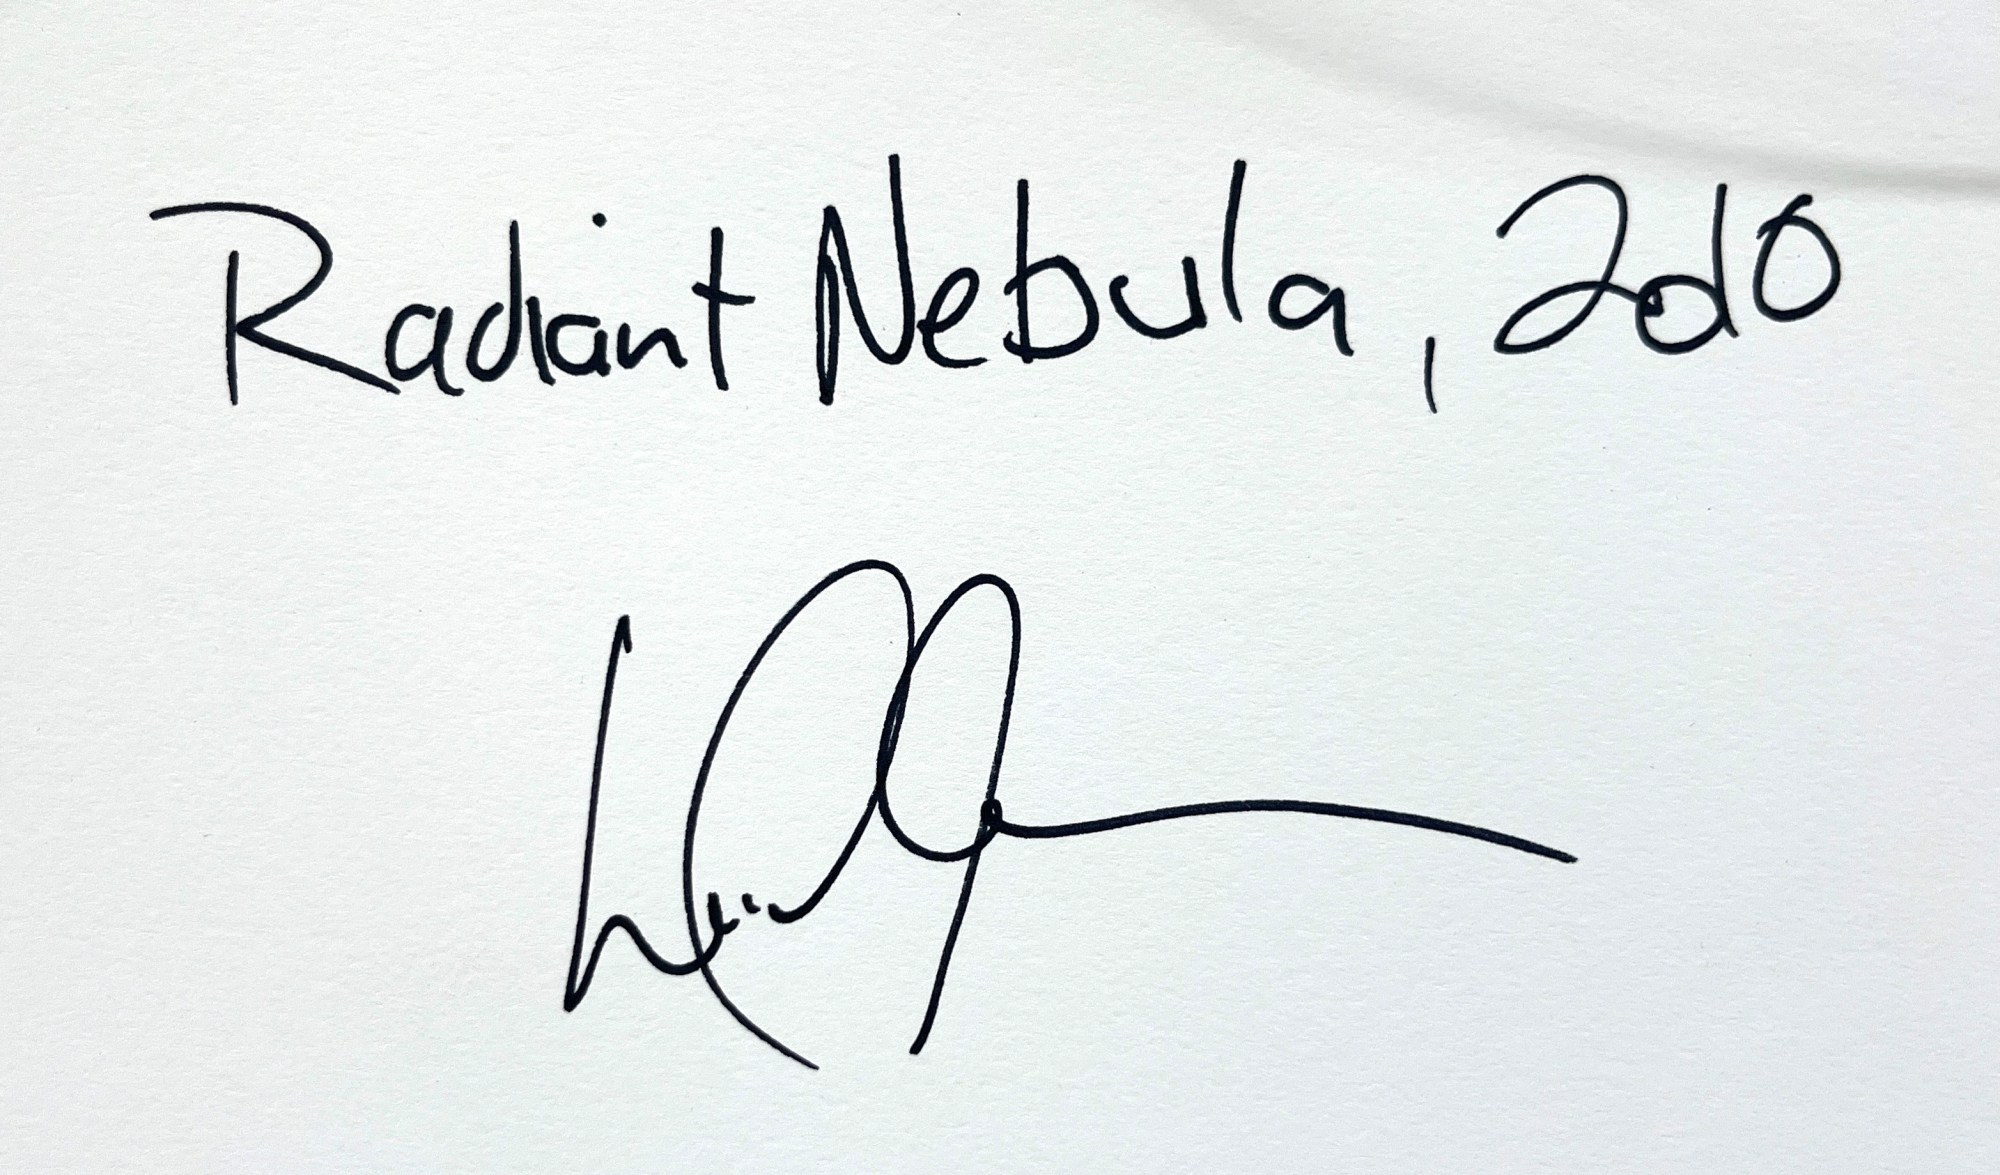 Radiant Nebula, 2010